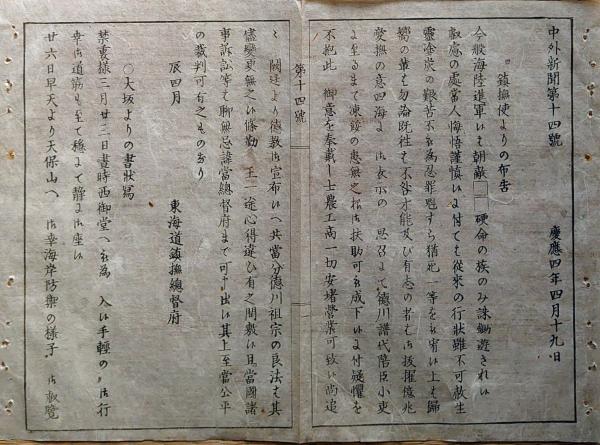 中外新聞第十四號　慶應四年四月十九日
○鎮撫使よりの布告
今般海陸進軍いも朝敵□□硬命の族のみ誅鋤遊されい
叡慮の處當人悔悟謹慎いよ付ても從來の行狀雖不可赦生
靈塗炭の艱苦不被為忍罪魁すら猶死一等を被宥い上も歸
嚮の輩も勿論既往も不咎才能及び有志の者も御拔擢億兆
愛撫の意四海よ御表示の　思召よて德川譜代陪臣小吏
よ至るまて凍餒の患無之松御扶助可被成下いよ付疑懼を
不抱此　御意を奉戴し士農工商一切安堵營業可致い尚追
第十四號
々　關廷より德教御宣布いへ共當分德川祖宗の良法も其
儘變更無之い條勤　王一途心得違ひ有之間敷い且當國諸
事訴訟等も聊無忌諱當總督府まで可申出い其上至當公平
の裁判可有之ものなり
辰四月　東海道鎮撫總督府
○大坂よりの書狀寫
禁裏樣三月廿三日晝時西御堂へ被為　入い手輕の御行
幸御道筋も至て穩よて靜よ御座い
廿六日早天より天保山へ　御幸海岸防禦の樣子　御叡覽